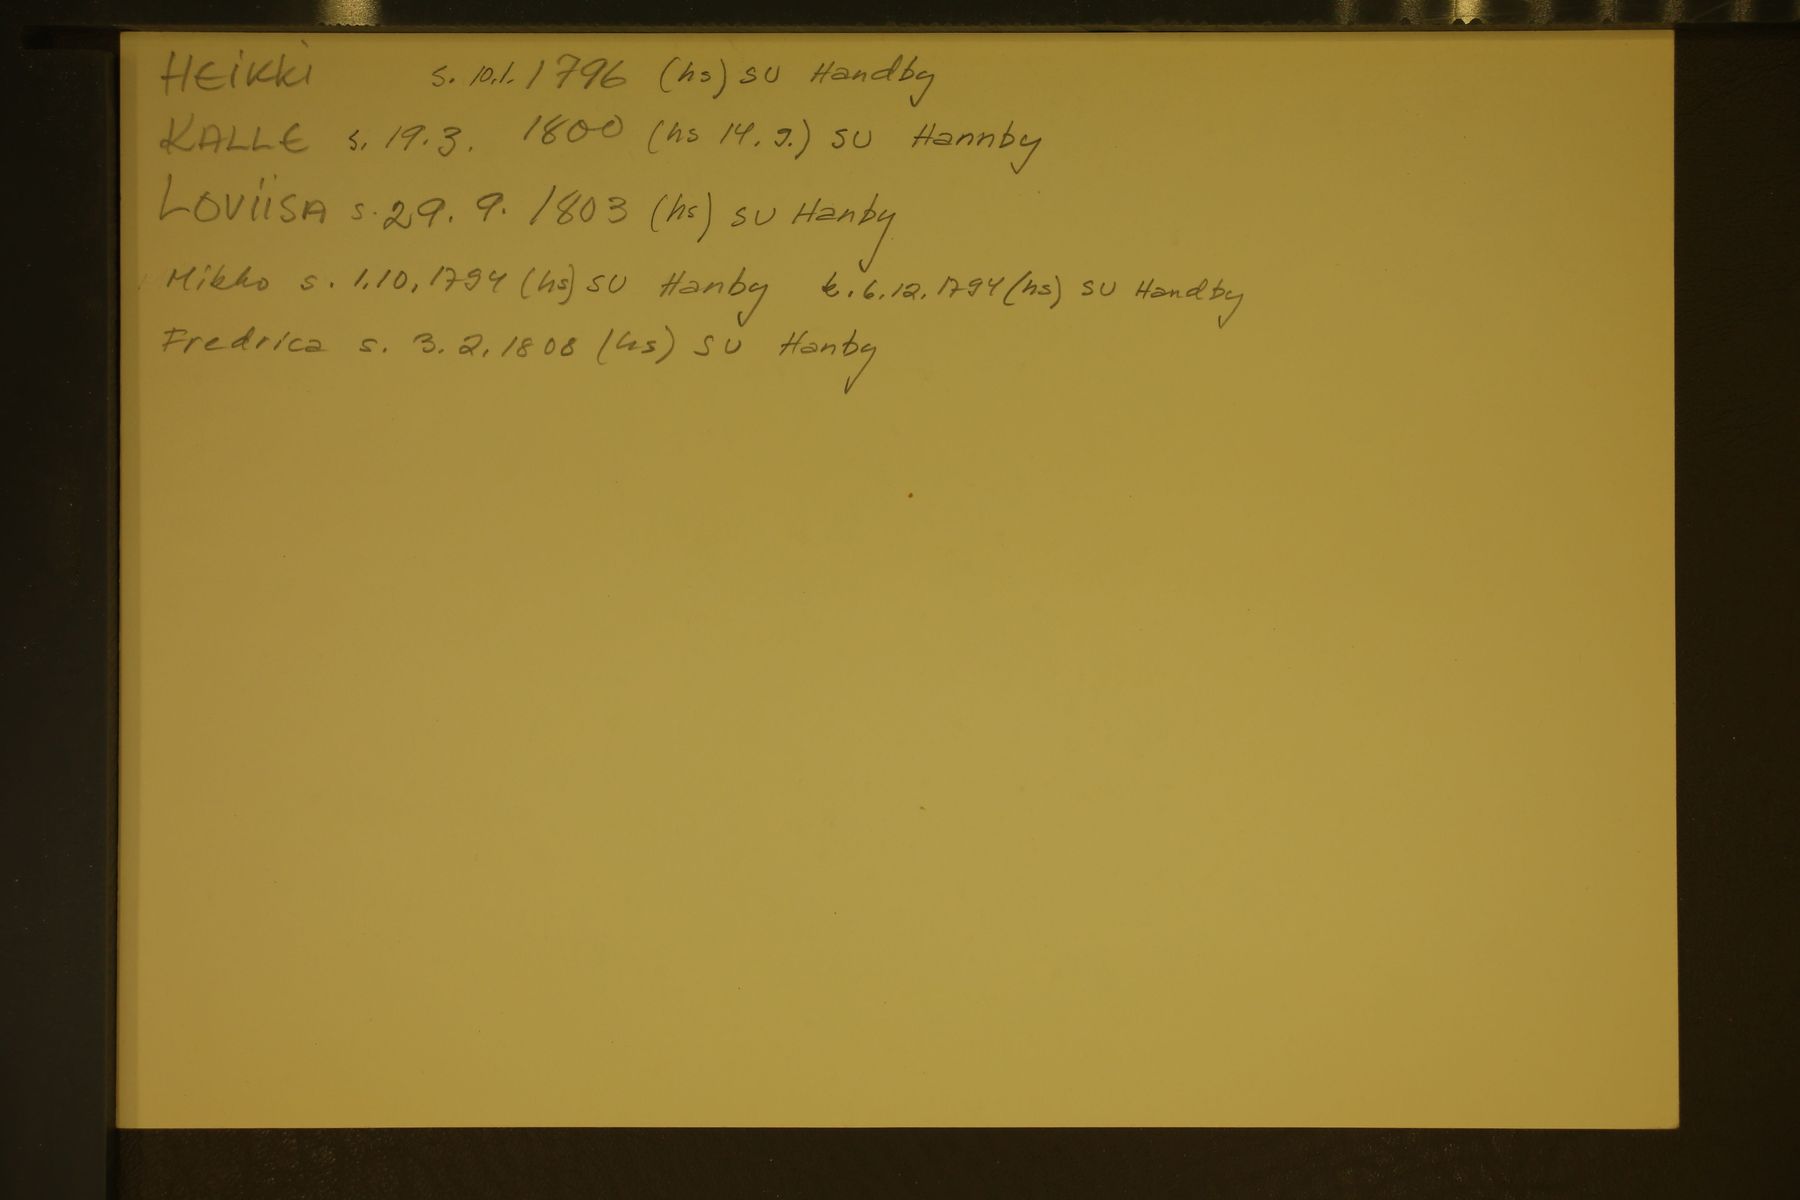 HEIKKI s. 10.1. 1796 (hs) SU Handby
KALLE s. 19.3. 1800 (hs 14.9.) SU Hannby
LOVIISA s. 29. 9. 1803 (hs) SU Hanby
Mikko s. 1.10.1794 (hs) SU Hanby k. 6.12.1794 (hs) SU Handby
Fredrica s. 3.2.1808 (hs) SU Hanby